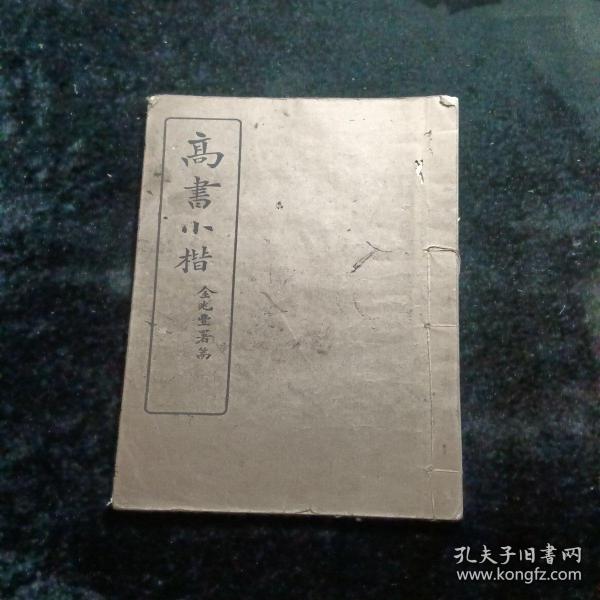 高書小楷
金兆豐署耑
孔夫子旧書网
www.kongfz.com